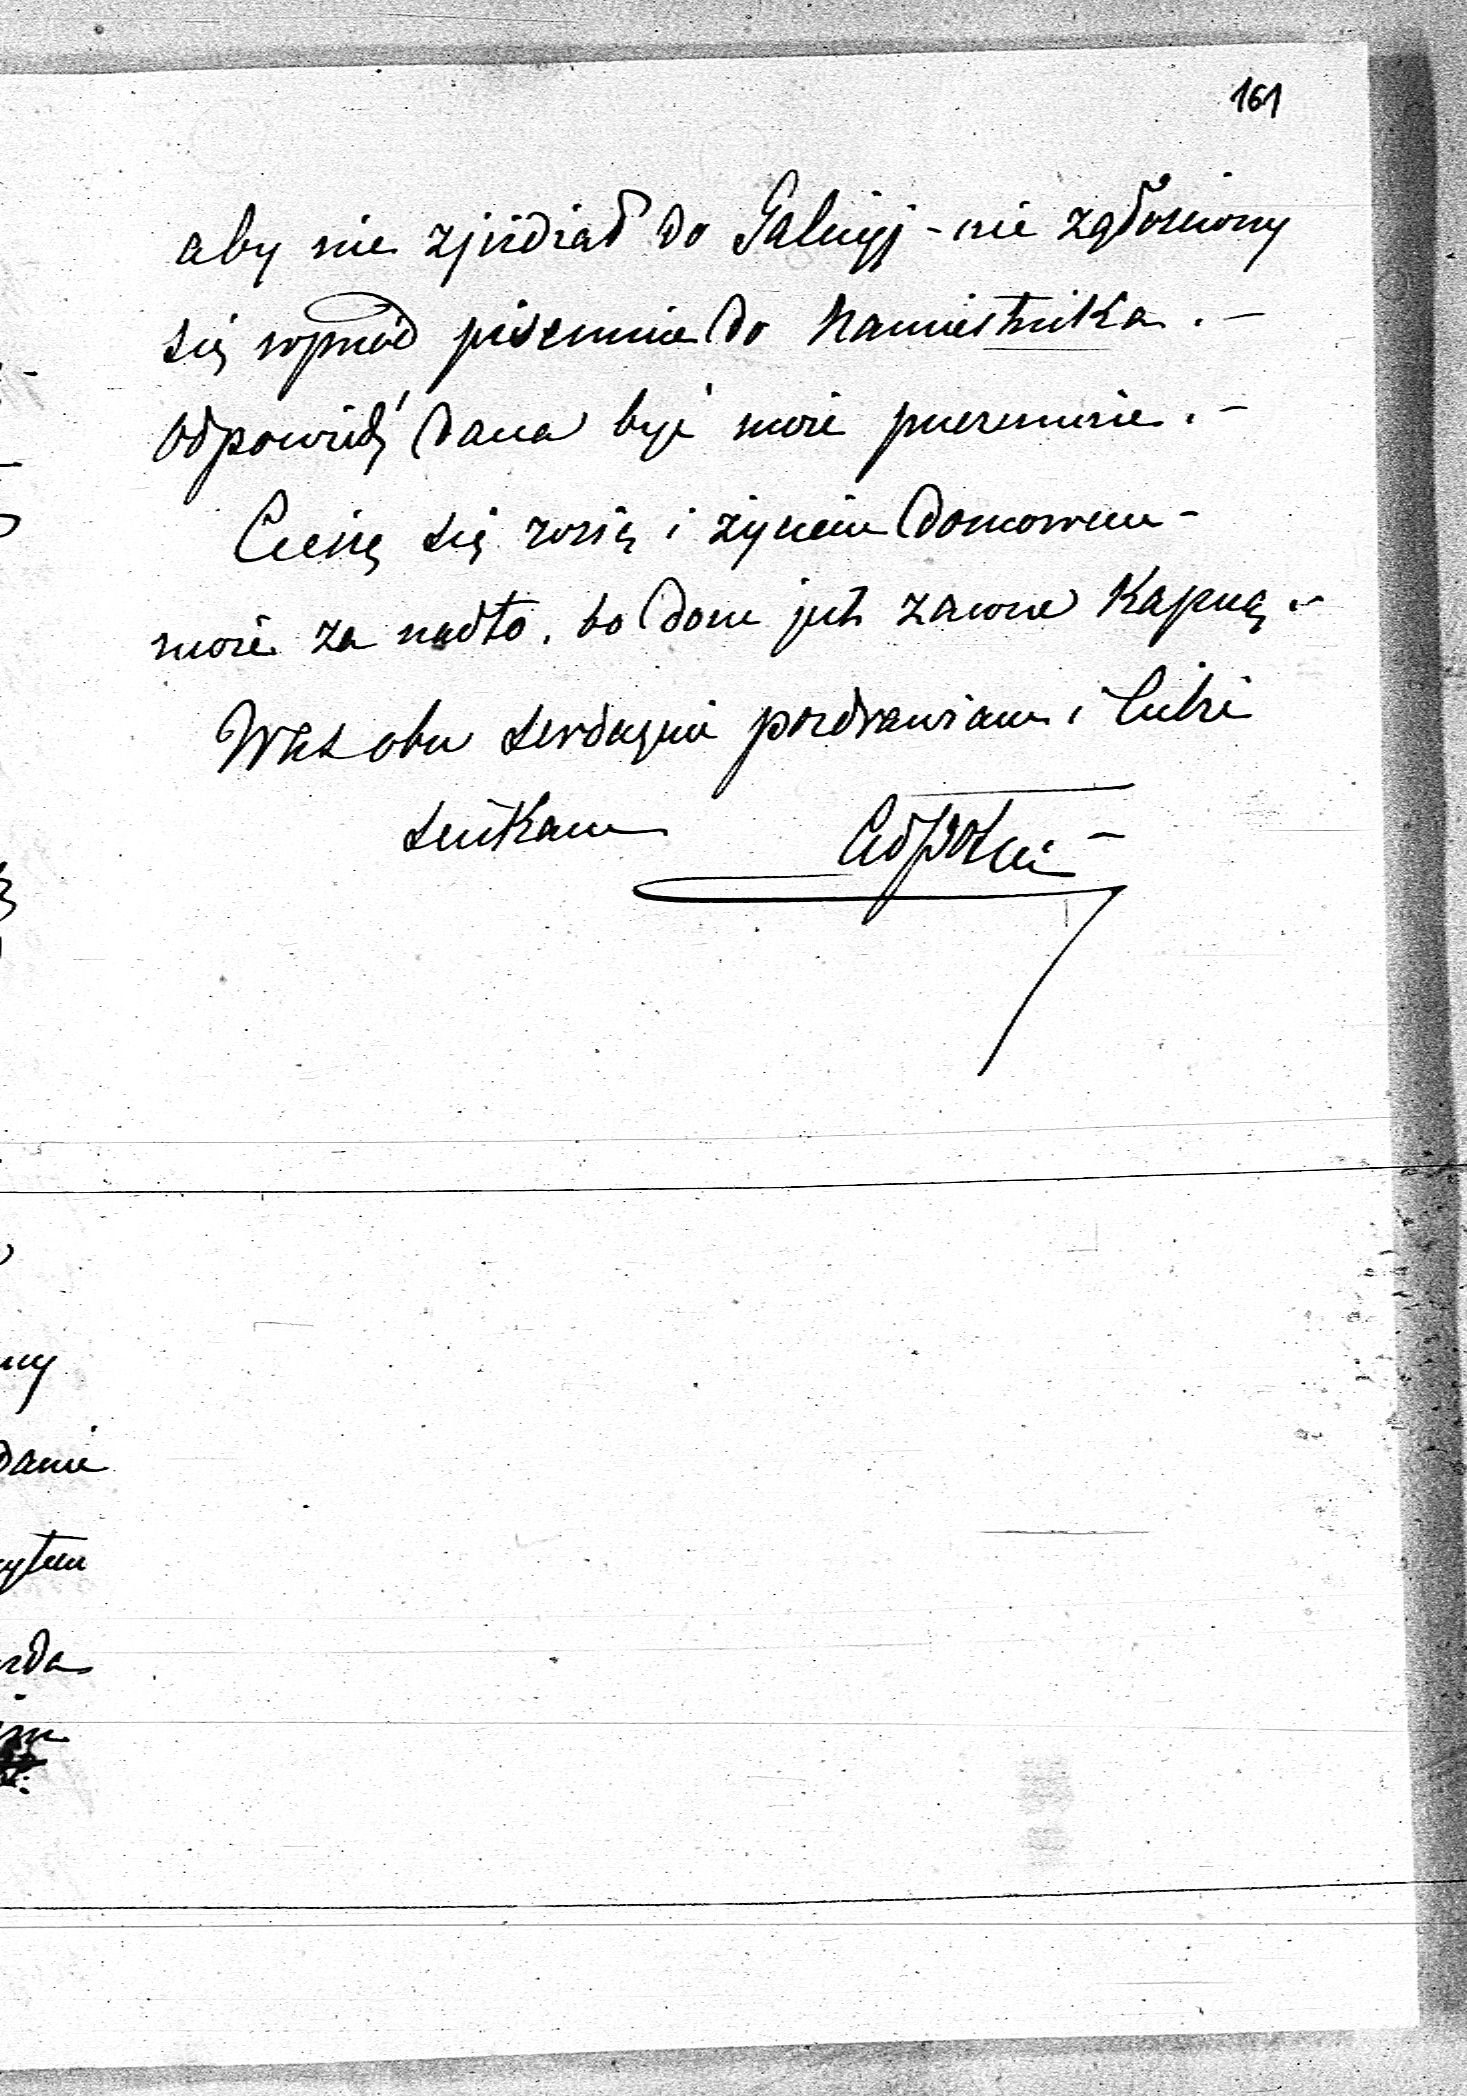 161
aby nie zjeżdżał do Galicyj - nie zgłosiwszy
się wprzód pisemnie do Namiestnika . –
Odpowiedź dana być może pisemnie . –
Cieszę się Zosią i życiem domowem –
może za nadto . bo dom jest zawsze Kapuą . –
Was obu serdecznie pozdrawiam i Ciebie
ściskam
danie